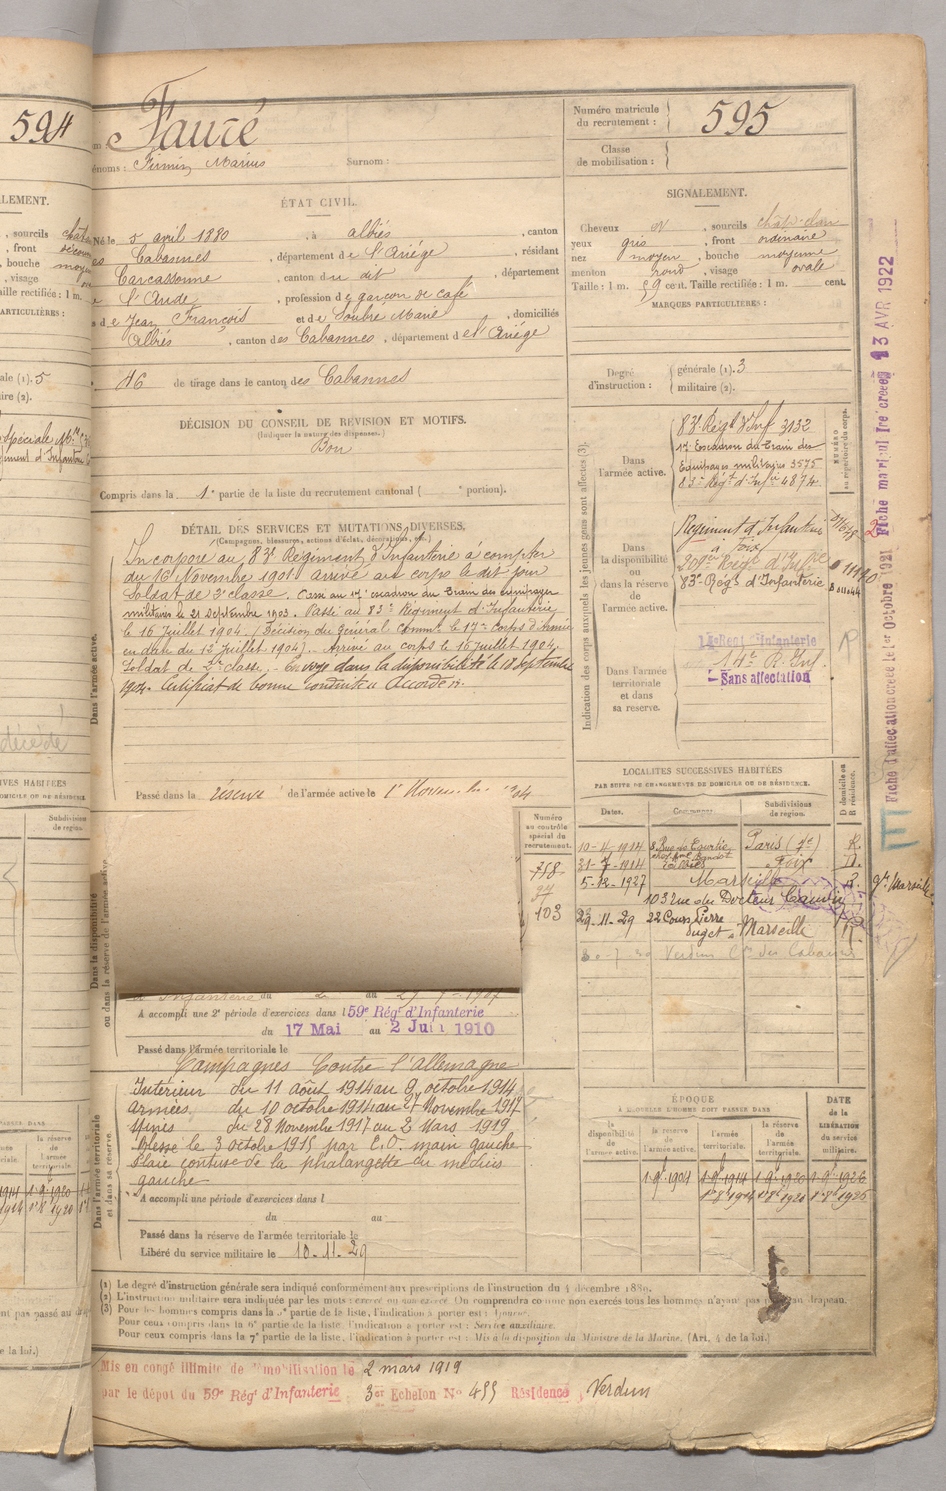 594
595
Nom
Fauré
Prénoms : Firmin Marius Surnom :
Numéro matricule du recrutement :
Classe de mobilisation :
ÉTAT CIVIL.
Né le 5 avril 1880 , à Albiès , canton
des Cabannes , département de l'Ariège , résidant
Carcassonne , canton du dit , département
de l'Aude , profession de garçon de café
fils de Jean François et de Soubre Marie , domiciliés
Albiès , canton des Cabannes , département de l'Ariège
N° 46 de tirage dans le canton des Cabannes
SIGNALEMENT.
Cheveux , sourcils chât. clair
yeux gris , front ordinaire
nez moyen , bouche moyenne
menton rond , visage ovale
Taille : 1 m. 59 cent. Taille rectifiée : 1 m. cent.
MARQUES PARTICULIÈRES :
Degré d'instruction : générale (1). 3
militaire (2).
DÉCISION DU CONSEIL DE REVISION ET MOTIFS.
(Indiquer la nature des dispenses.)
Bon
Compris dans la 1e partie de la liste du recrutement cantonal ( e portion).
DÉTAIL DES SERVICES ET MUTATIONS DIVERSES.
(Campagnes, blessures, actions d'éclat, décorations, etc.)
Dans l'armée active.
Incorporé au 83e Régiment d'Infanterie à compter
du 16 Novembre 1901 arrivé au corps le dit jour
Soldat de 2e classe. Passé au 17e escadron du Train des équipages
militaires le 21 septembre 1903. Passé au 83e Régiment d'Infanterie
le 16 Juillet 1904 (Décision du Général Commt le 17e Corps d'Armée
en date du 12 Juillet 1904). Arrivé au corps le 16 juillet 1904
Soldat de 2e classe. Envoyé dans la disponibilité le 18 septembre
1904. Certificat de bonne conduite accordé.
Passé dans la réserve de l'armée active le 1er Novembre 1904
Indication des corps auxquels les jeunes gens sont affectés (3).
NUMÉRO au répertoire du corps.
Dans l'armée active.
83e Régt d'Inf 3132
17e Escadron du Train des
Équipages militaires 3575
83e Régt d'Infie 4874
Dans la disponibilité ou dans la réserve de l'armée active.
Régiment d'Infanterie
à Foix
209e Régt d'Infie
83e Régt d'Infanterie
Dans l'armée territoriale et dans sa réserve.
14e R. Inf.
Sans affectation
Fiche d'affectation créée le 1er Octobre 1921 Fiche matricul 1re créée 13 AVR 1922
LOCALITÉS SUCCESSIVES HABITÉES
PAR SUITE DE CHANGEMENTS DE DOMICILE OU DE RÉSIDENCE.
Dates. Communes. Subdivisions de région. D domicile ou R résidence.
10-4-1914 Paris R.
21-7-1914 Albiès Foix D.
5-12-1927 Marseille R.
103 rue du Docteur
29-11-29 22 Cours Pierre
Puget à Marseille R.
Verdun Con des Cabannes
Numéro au contrôle spécial du recrutement.
758
103
Dans la disponibilité ou dans la réserve de l'armée active
A accompli une 2e période d'exercices dans l 59e Régt d'Infanterie
du 17 Mai au 2 Juin 1910
Passé dans l'armée territoriale le
Campagnes Contre l'Allemagne
Dans l'armée territoriale et dans sa réserve.
Intérieur du 11 août 1914 au 9 octobre 1914
Armées du 10 octobre 1914 au 27 Novembre 1917
Mines du 28 Novembre 1917 au 2 Mars 1919
Blessé le 3 octobre 1915 par E.O. main gauche
Plaie contuse de la phalangette du médius
gauche
A accompli une période d'exercices dans l
du au
Passé dans la réserve de l'armée territoriale le
Libéré du service militaire le 10-11-29
ÉPOQUE
À LAQUELLE L'HOMME DOIT PASSER DANS
la disponibilité de l'armée active. la réserve de l'armée active. l'armée territoriale. la réserve de l'armée territoriale.
DATE de la LIBÉRATION du service militaire.
1-9bre 1904 1-9bre 1914 1-9bre 1920 1-9bre 1926
(1) Le degré d'instruction générale sera indiqué conformément aux prescriptions de l'instruction du 4 décembre 1889.
(2) L'instruction militaire sera indiquée par les mots : exercé ou non exercé. On comprendra comme non exercés tous les hommes n'ayant pas drapeau.
(3) Pour les hommes compris dans la partie de la liste, l'indication à porter est :
Pour ceux compris dans la 6e partie de la liste, l'indication à porter est : Service auxiliaire.
Pour ceux compris dans la 7e partie de la liste, l'indication à porter est : Mis à la disposition du Ministre de la Marine. (Art. 4 de la loi.)
Mis en congé illimité de démobilisation le 2 mars 1919
par le dépôt du 59e Régt d'Infanterie 3er Echelon No 455 Résidence, Verdun